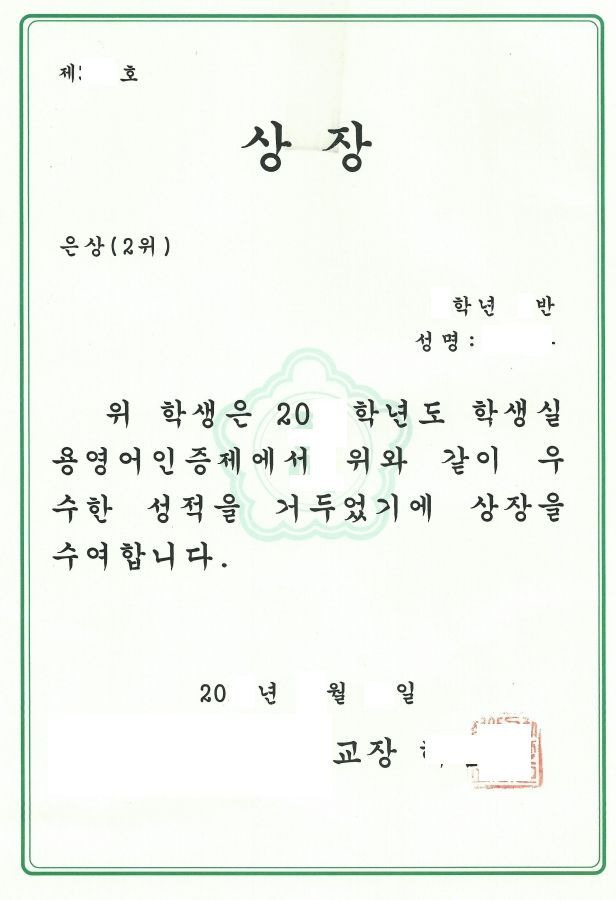 제 호
상 장
은상(2위)
학년 반
성명 : .
위 학생은 20 학년도 학생실
용영어인증제에서 위와 같이 우
수한 성적을 거두었기에 상장을
수여합니다.
20 년 월 일
교장